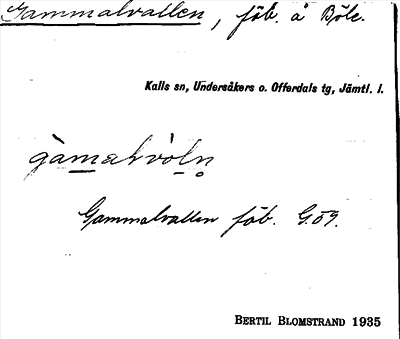 Gammalvallen, fäb. å Böle.
Kalls sn, Undersåkers o. Offerdals tg, Jämtl. l.
gàmalvòln̥
Gammalvallen fäb. G.Ö9.
BERTIL BLOMSTRAND 1935